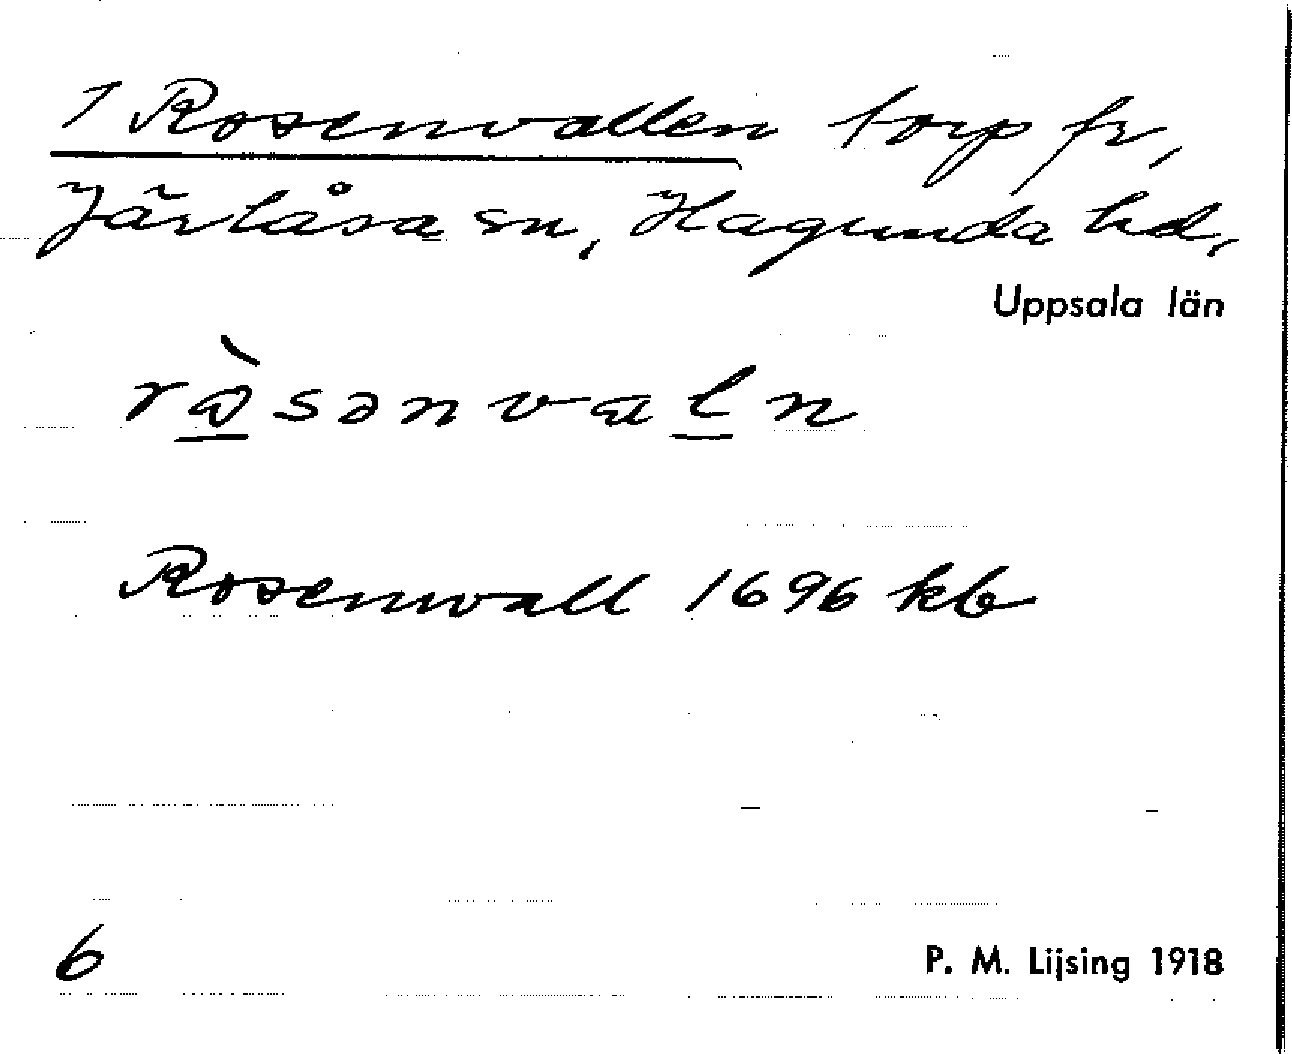 1 Rosenvallen torp fr,
Järlåsa sn, Hagunda hd,
Uppsala län
rὰsənvaln
Rosenwall 1696 kb
6
P. M. Lijsing 1918